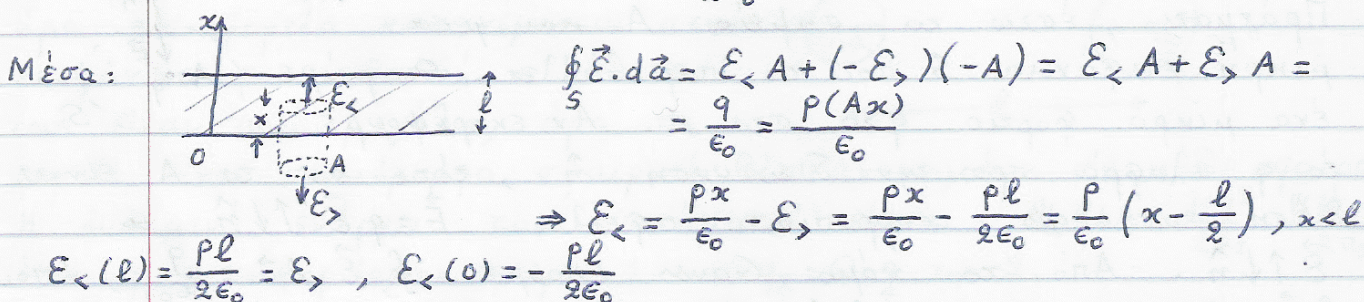 Μέσα:
x
ℰ<
x
l
0
A
ℰ>
∮_S ℰ⃗.da⃗ = ℰ< A + (-ℰ>)(-A) = ℰ< A + ℰ> A =
= q/ϵ₀ = ρ(Ax)/ϵ₀
⇒ ℰ< = ρx/ϵ₀ - ℰ> = ρx/ϵ₀ - ρl/2ϵ₀ = ρ/ϵ₀ (x - l/2), x<l
ℰ<(l) = ρl/2ϵ₀ = ℰ> , ℰ<(0) = - ρl/2ϵ₀